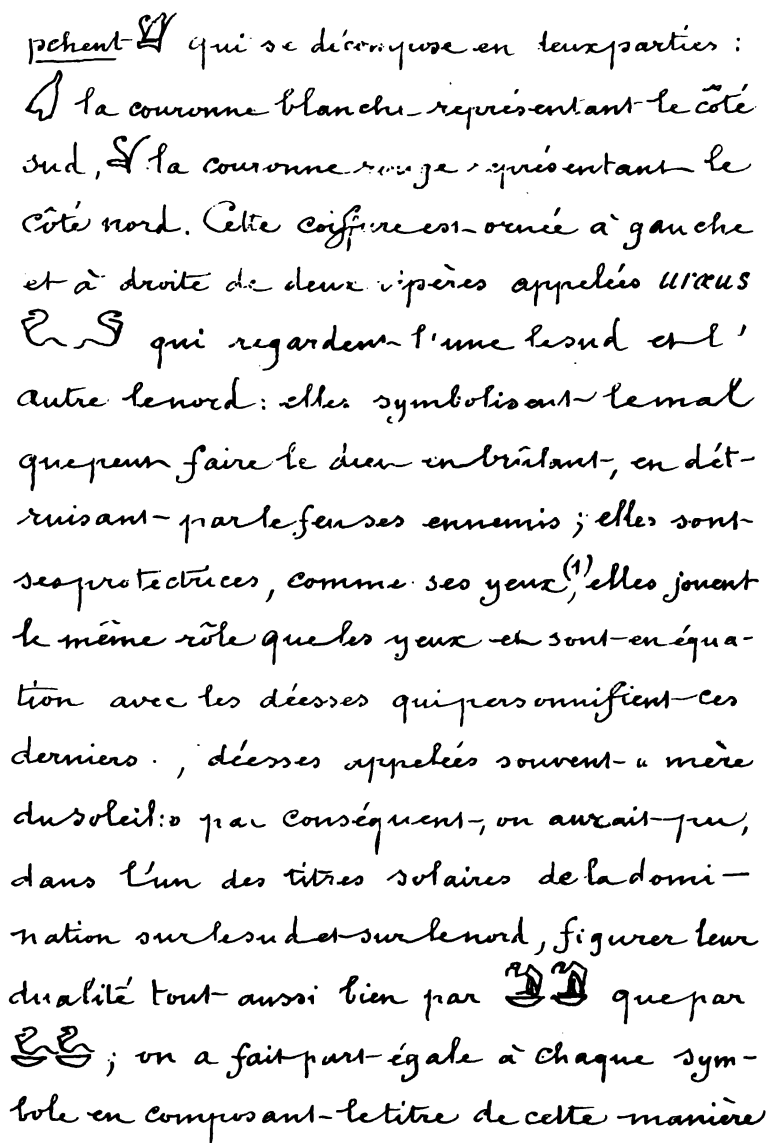 pchent 𓋖 qui se décompose en deux parties :
𓋑 la couronne blanche représentant le côté
sud, 𓋔 la couronne rouge représentant le
côté nord. Cette coiffure est ornée à gauche
et à droite de deux vipères appelées uraeus
qui regardent l'une le sud et l'
autre le nord : elles symbolisent le mal
que peut faire le dieu en brûlant, en dét-
ruisant par le feu ses ennemis ; elles sont
ses protectrices, comme ses yeux (1), elles jouent
le même rôle que les yeux et sont en équa-
tion avec les déesses qui personnifient ces
derniers , déesses appelées souvent « mère
du soleil :» par conséquent, on aurait pu,
dans l'un des titres solaires de la domi-
nation sur le sud et sur le nord, figurer leur
dualité tout aussi bien par que par
; on a fait part égale à chaque sym-
bole en composant le titre de cette manière